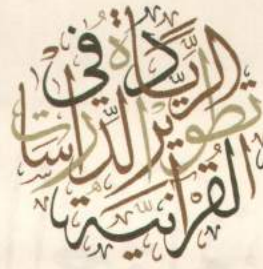 الرِّيَادَةُ فِي
تَطْوِيرِ الدِّرَاسَاتِ
القُرْآنِيَّةِ